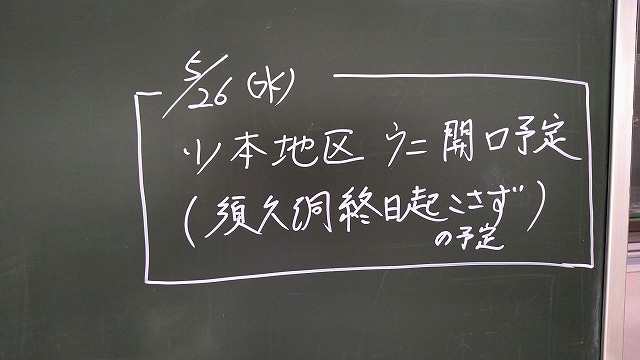 5/26 (水)
小本地区 ウニ開口予定
(須久洞終日起こさず)
の予定